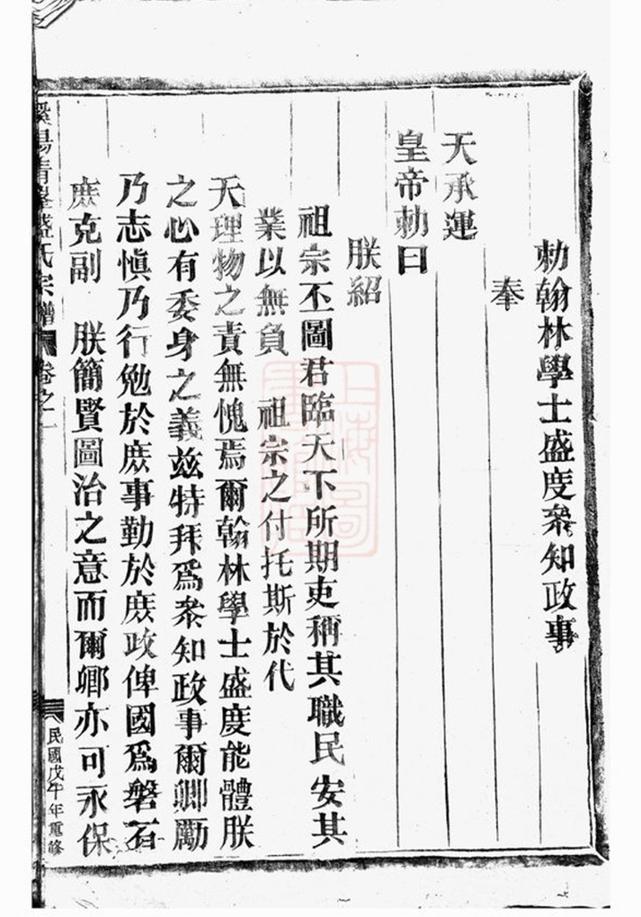 勅翰林學士盛度叅知政事
奉
天承運
皇帝勅曰
朕紹
祖宗丕圖君臨天下所期吏稱其職民安其
業以無負 祖宗之付托斯於代
天理物之責無愧焉爾翰林學士盛度能體朕
之心有委身之義兹特拜爲叅知政事爾卿勵
乃志愼乃行勉於庶事勤於庶政俾國爲磐石
庶克副 朕簡賢圖治之意而爾卿亦可永保
盛氏宗譜 卷之一 民國戊午年重修
上海圖